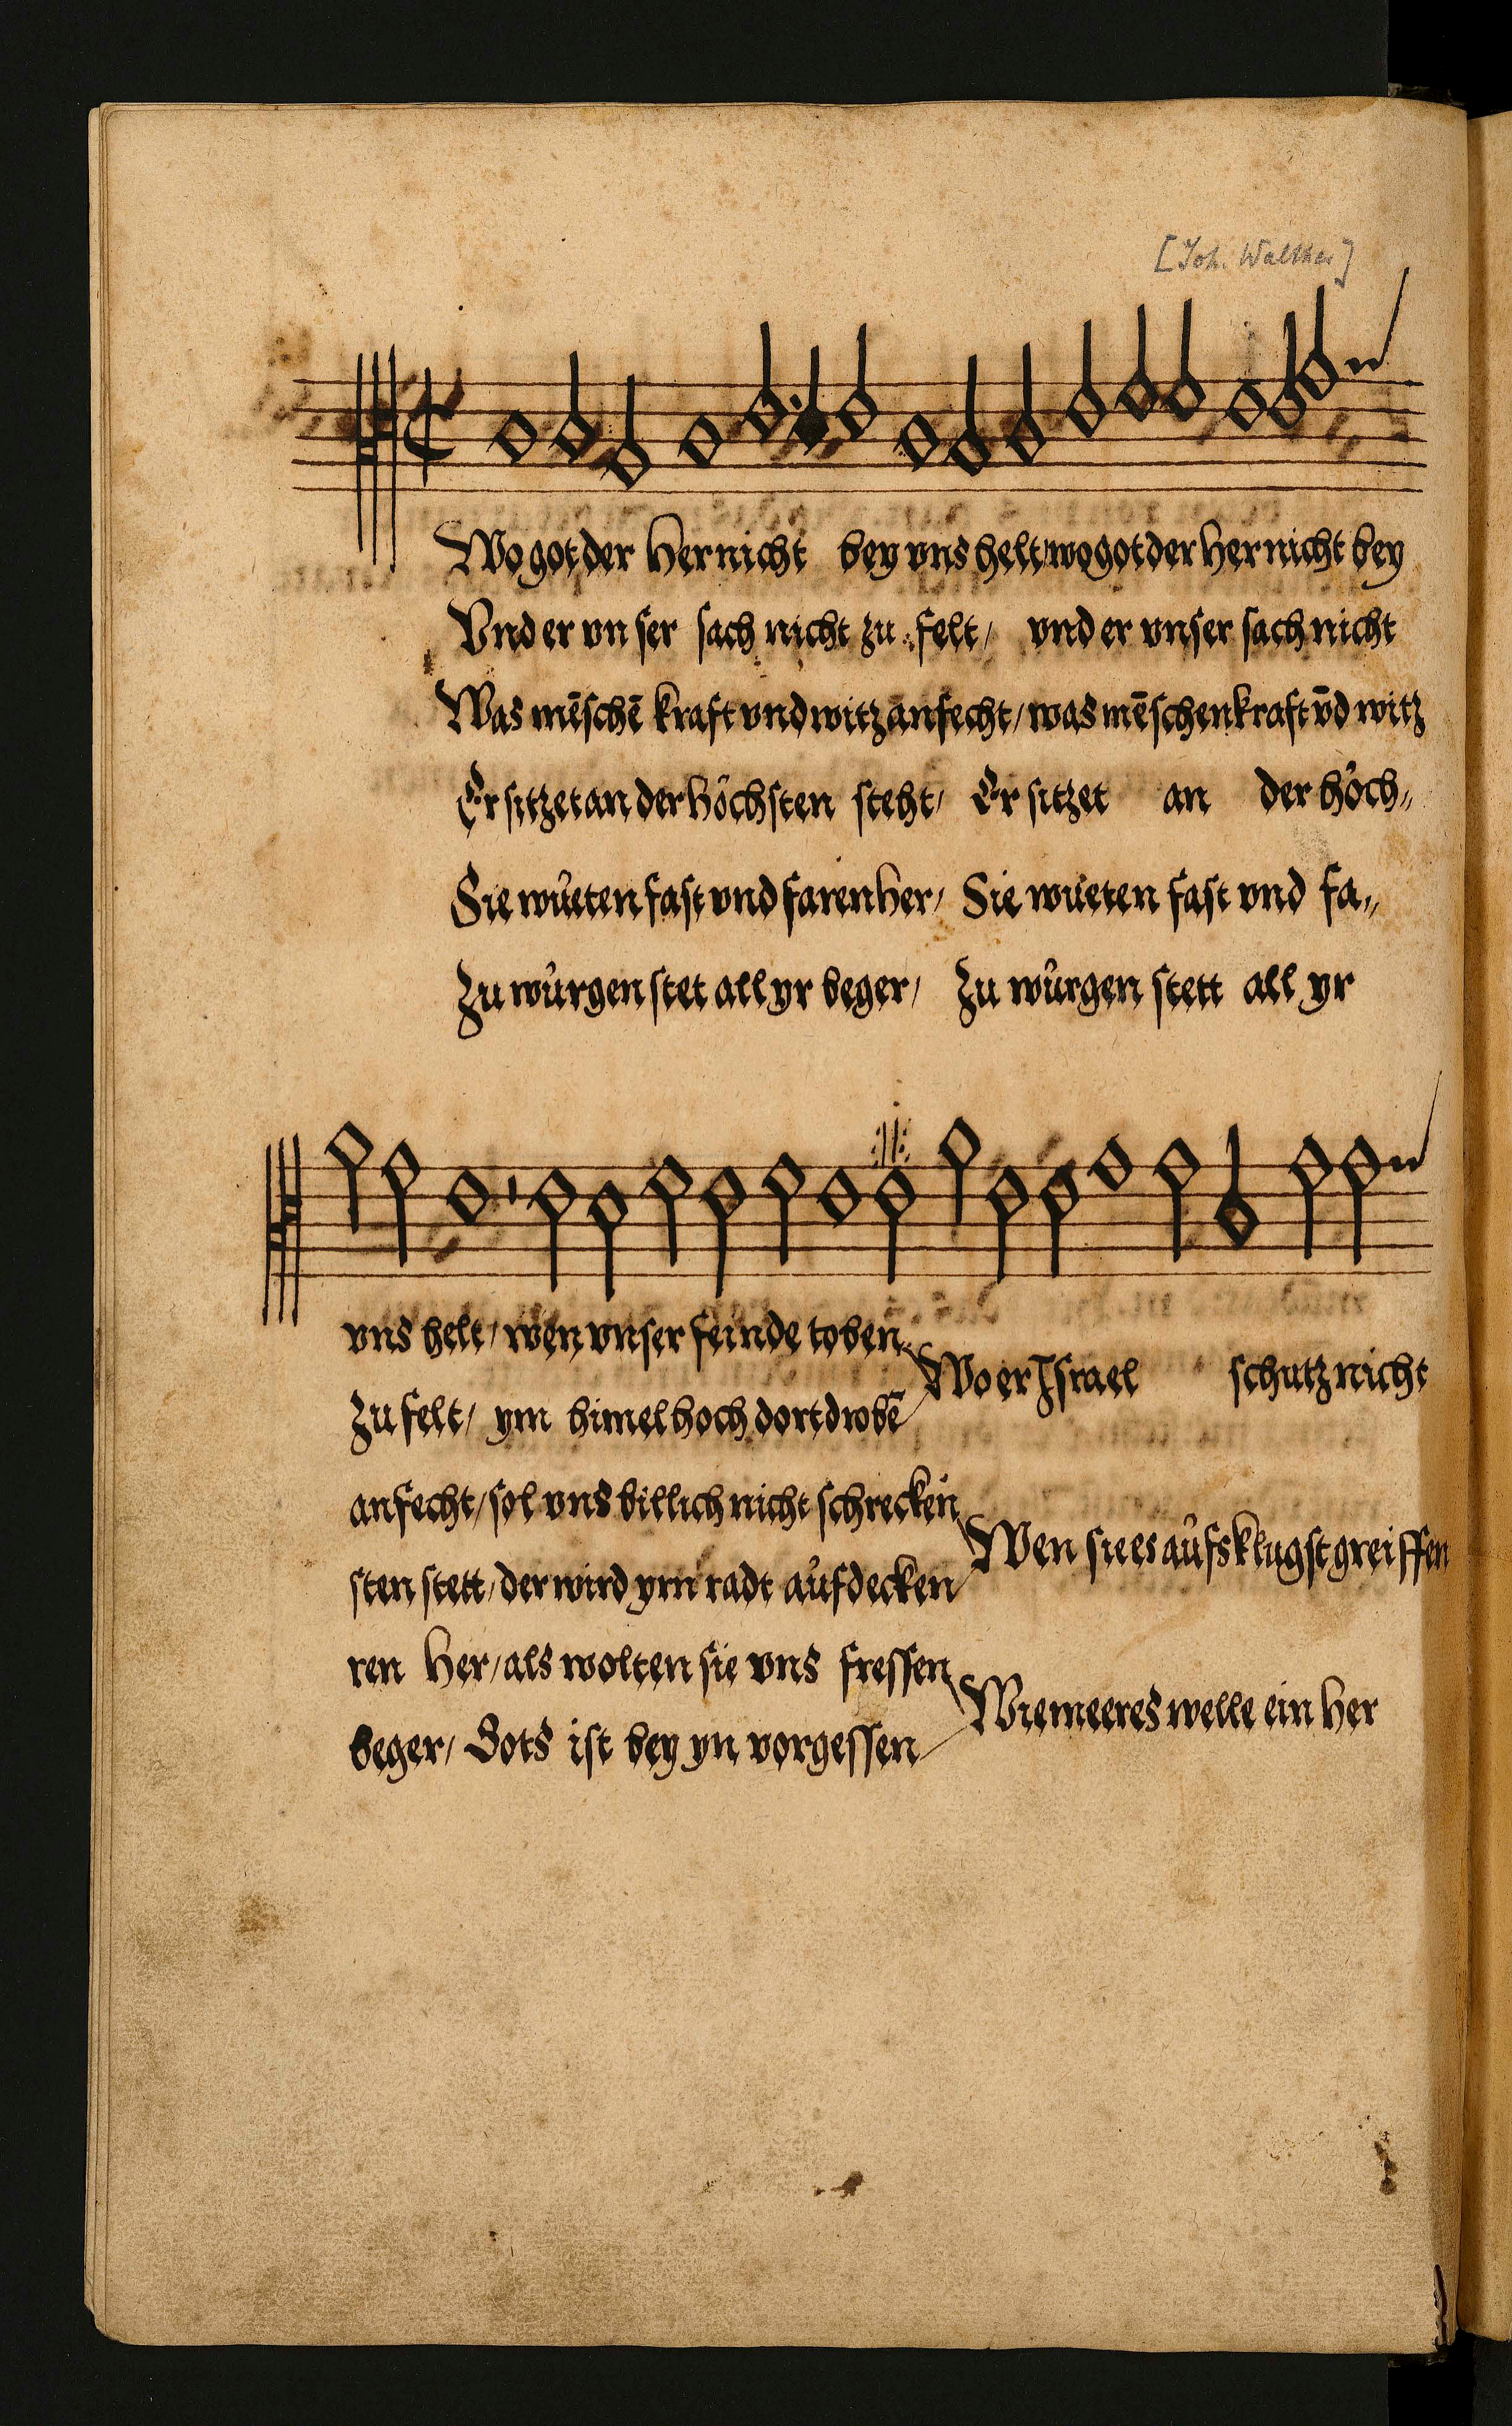 [Joh. Walther]
Wo got der Her nicht bey vns helt/wo got der Her nicht bey
Vnd er vnser sach nicht zu felt/ vnd er vnser sach nicht
Was mēschē kraft vnd witz anfecht/was mēschen kraft vn̄d witz
Er sitzet an der höchsten steht/ Er sitzet an der höch„
Sie wüeten fast vnd faren her/ Sie wüeten fast vnd fa„
Zu würgen stet all yr beger/ Zu würgen stett all yr
vns helt/wen vnser feinde toben
Wo er Israel schutz nicht
Zu felt/ ym himel hoch dort drobē
anfecht/sol vns billich nicht schrecken
Wen sie es aüfs klugst greiffen
sten stett/der wird ym radt aüfdecken
ren her/als wolten sie vns fressen
Wie meeres welle ein her
beger/ Gots ist bey yn vorgessen